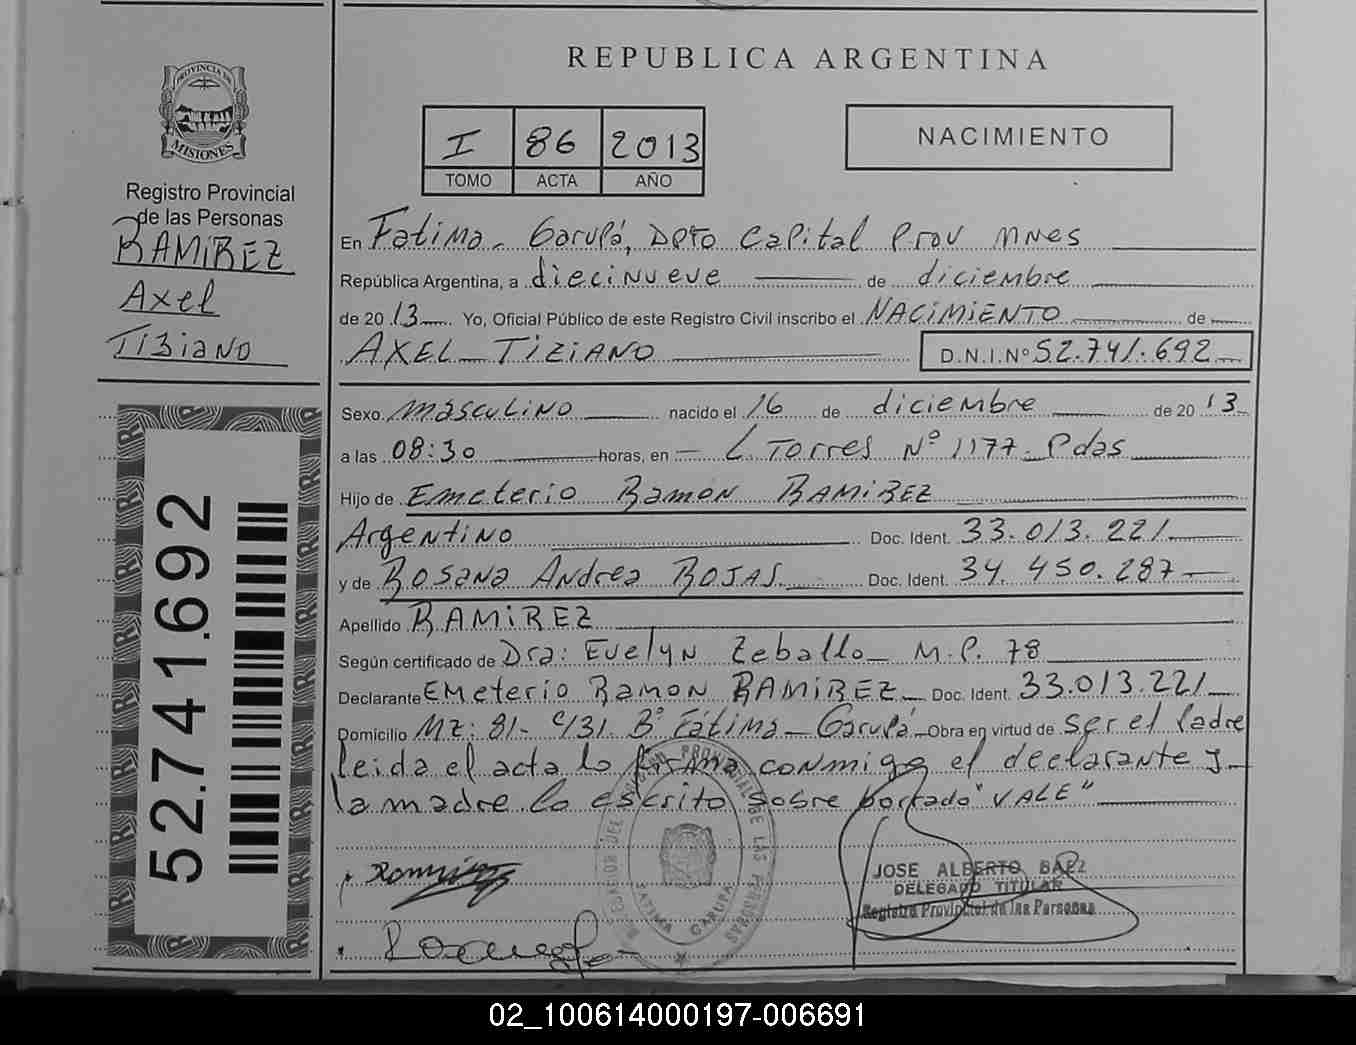 REPUBLICA ARGENTINA
PROVINCIA DE
MISIONES
Registro Provincial
de las Personas
RAMIREZ
Axel
Tiziano
I 86 2013
TOMO ACTA AÑO
NACIMIENTO
En Fatima - Garupá, Dpto Capital Prov Mnes
República Argentina, a diecinueve de diciembre
de 2013 Yo, Oficial Público de este Registro Civil inscribo el NACIMIENTO de
AXEL TIZIANO D.N.I.Nº 52.741.692
Sexo masculino nacido el 16 de diciembre de 2013
a las 08:30 horas, en L. Torres Nº 1177 - Pdas
Hijo de Emeterio Ramon RAMIREZ
Argentino Doc. Ident. 33.013.221
y de Rosana Andrea ROJAS Doc. Ident. 34.450.287
Apellido RAMIREZ
Según certificado de Dra: Evelyn Zeballo M.P. 78
Declarante Emeterio Ramon RAMIREZ Doc. Ident. 33.013.221
Domicilio Mz: 81- C/31 Bº Fátima - Garupá Obra en virtud de ser el Padre
leida el acta lo firma conmigo el declarante y
la madre lo escrito sobre borrado "VALE"
52.741.692
JOSE ALBERTO BAEZ
DELEGADO TITULAR
Registro Provincial de las Personas
PROVINCIAL DE LAS PERSONAS
FATIMA GARUPA
02_100614000197-006691